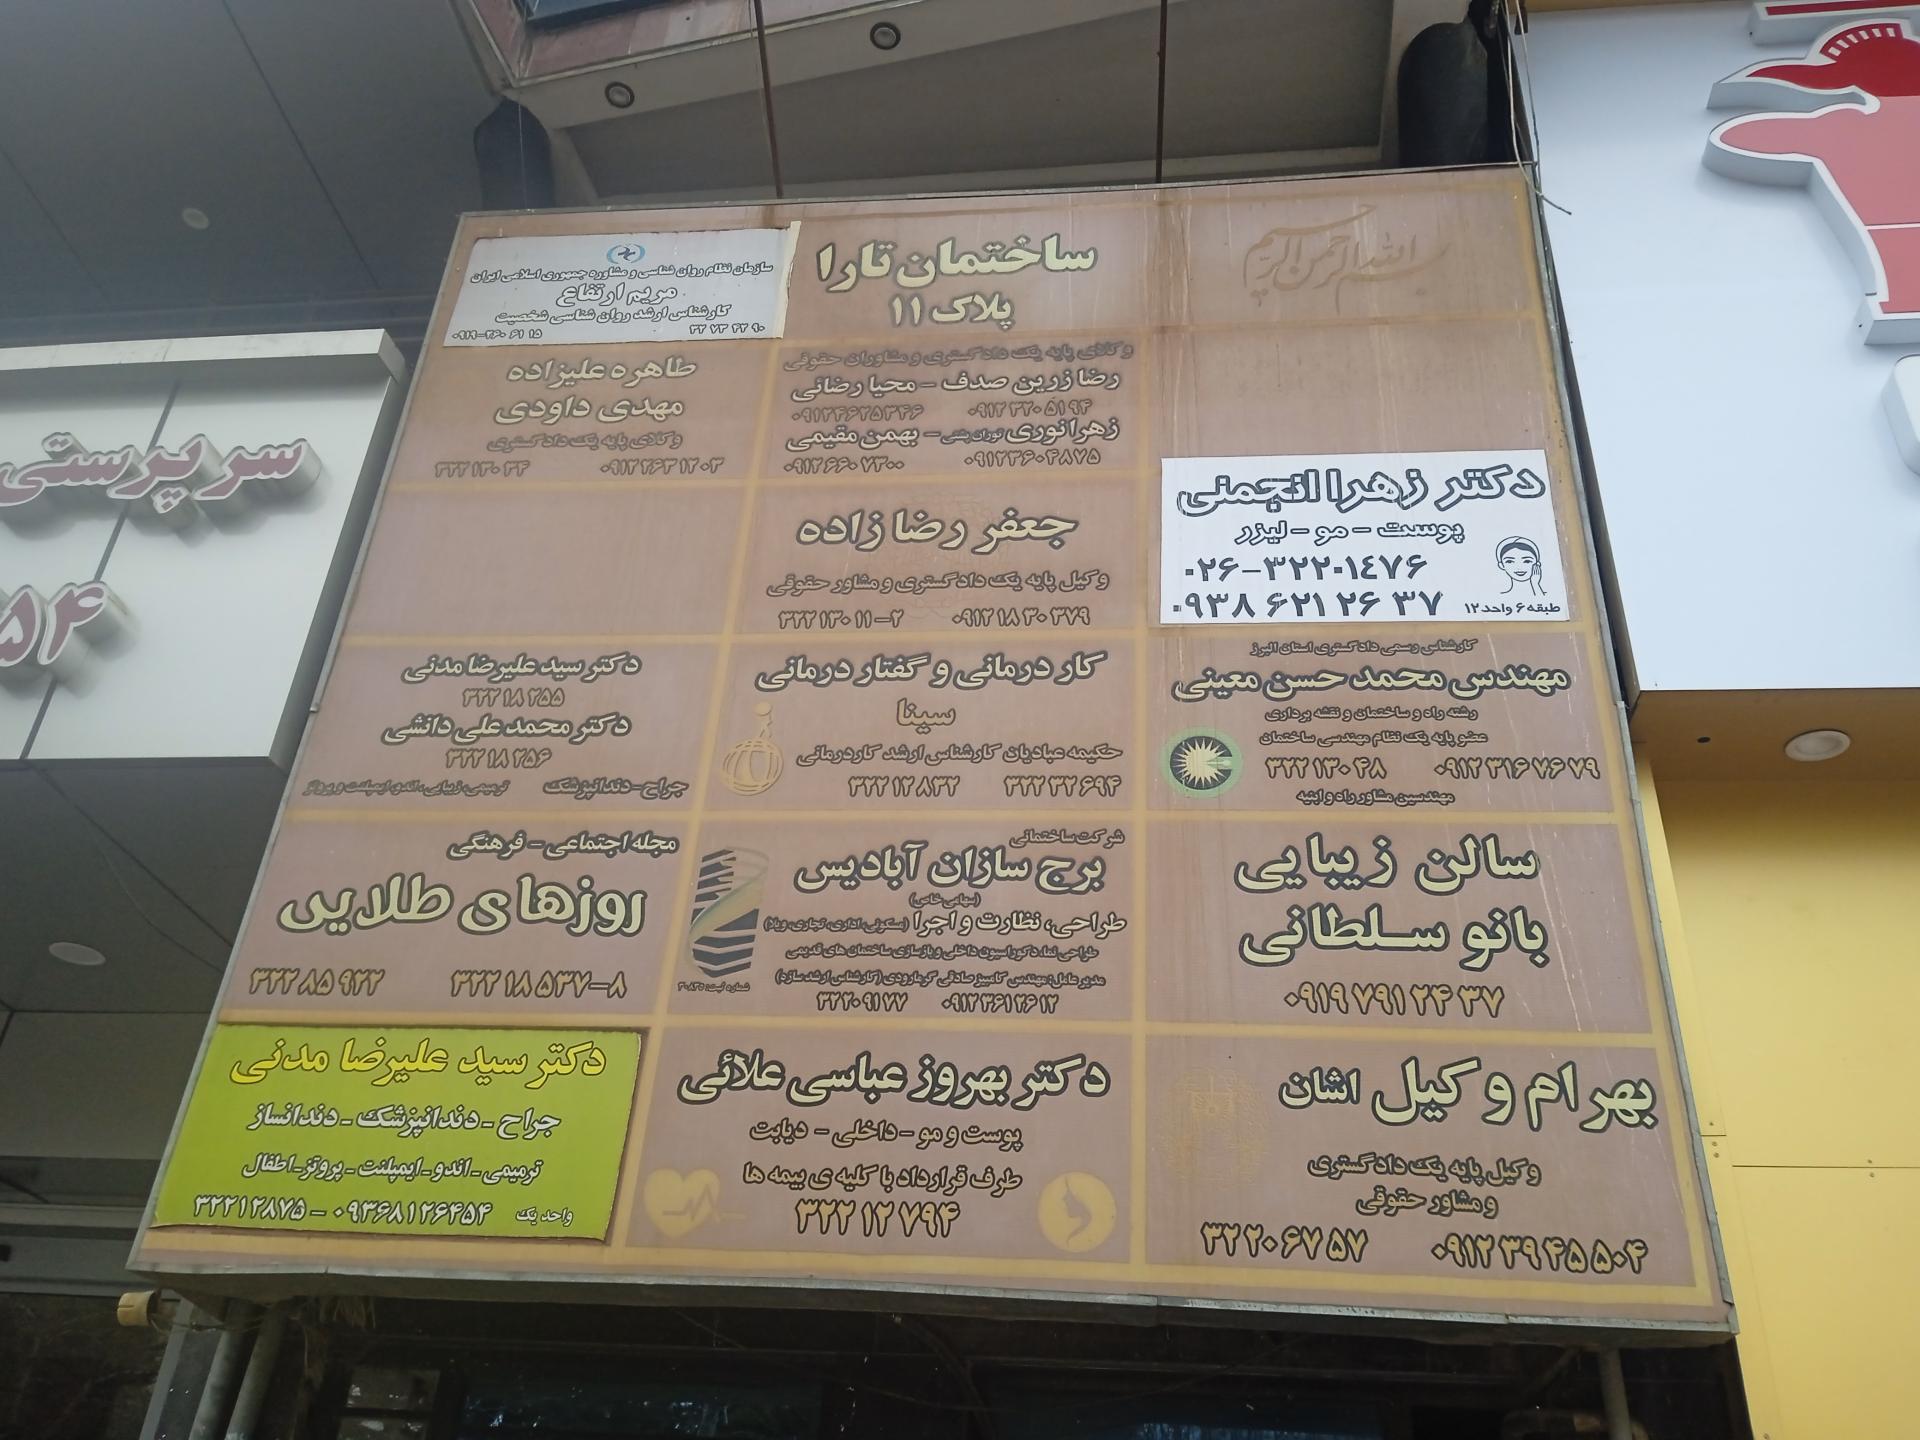 بسم الله الرحمن الرحیم
ساختمان تارا
پلاک ۱۱
سازمان نظام روان شناسی و مشاوره جمهوری اسلامی ایران
مریم ارتفاع
کارشناس ارشد روان شناسی شخصیت
۳۲ ۷۳ ۴۲ ۹۰
۰۹۱۹-۲۶۰ ۶۱ ۱۵
وکلای پایه یک دادگستری و مشاوران حقوقی
رضا زرین صدف - محیا رضائی
۰۹۱۲ ۳۲۰ ۵۱ ۹۴ ۰۹۱۲۴۶۲۵۳۴۶
زهرا نوری توران پشتی - بهمن مقیمی
۰۹۱۲۳۶۰۴۸۷۵ ۰۹۱۲۶۶۰۷۳۰۰
طاهره علیزاده
مهدی داودی
وکلای پایه یک دادگستری
۰۹۱۲ ۲۶۳۱۲۰۳ ۳۲۲۱۳۰۳۴
دکتر زهرا انجمنی
پوست - مو - لیزر
۰۲۶-۳۲۲۰۱٤۷۶
۰۹۳۸ ۶۲۱ ۲۶ ۳۷
طبقه ۶ واحد ۱۲
جعفر رضا زاده
وکیل پایه یک دادگستری و مشاور حقوقی
۰۹۱۲ ۱۸ ۳۰ ۳۷۹ ۳۲۲ ۱۳۰ ۱۱-۲
کارشناس رسمی دادگستری استان البرز
مهندس محمد حسن معینی
رشته راه و ساختمان و نقشه برداری
عضو پایه یک نظام مهندسی ساختمان
۰۹۱۲ ۳۱۶ ۷۶ ۷۹ ۳۲۲ ۱۳۰ ۴۸
مهندسین مشاور راه و ابنیه
کار درمانی و گفتار درمانی
سینا
حکیمه عبادیان کارشناس ارشد کاردرمانی
۳۲۲ ۳۲ ۶۹۴ ۳۲۲ ۱۲ ۸۳۲
دکتر سید علیرضا مدنی
۳۲۲ ۱۸ ۲۵۵
دکتر محمد علی دانشی
۳۲۲ ۱۸ ۲۵۶
جراح-دندانپزشک ترمیمی، زیبایی، اندو ایمپلنت و پروتز
سالن زیبایی
بانو سلطانی
۰۹۱۹ ۷۹۱ ۲۴ ۳۷
شرکت ساختمانی
برج سازان آبادیس
(سهامی خاص)
طراحی، نظارت و اجرا (مسکونی، اداری، تجاری، ویلا)
طراحی نما، دکوراسیون داخلی و بازسازی ساختمان های قدیمی
مدیر عامل: مهندس کامبیز صادقی گرمارودی (کارشناس ارشد سازه)
۰۹۱۲ ۳۶۱ ۲۶ ۱۲ ۳۲۲۰۹۱۷۷
شماره ثبت: ۳۰۸۳۵
مجله اجتماعی - فرهنگی
روزهای طلایی
۳۲۲ ۱۸ ۵۳۷-۸ ۳۲۲ ۸۵ ۹۲۲
بهرام وکیل اشان
وکیل پایه یک دادگستری
و مشاور حقوقی
۰۹۱۲ ۳۹ ۴۵ ۵۰۴ ۳۲ ۲۰ ۶۷ ۵۷
دکتر بهروز عباسی علائی
پوست و مو - داخلی - دیابت
طرف قرارداد با کلیه ی بیمه ها
۳۲۲ ۱۲ ۷۹۴
دکتر سید علیرضا مدنی
جراح - دندانپزشک - دندانساز
ترمیمی - اندو - ایمپلنت - پروتز - اطفال
واحد یک ۰۹۳۶۸۱۲۶۴۵۴ - ۳۲۲۱۲۸۷۵
سرپرستی
۵۴